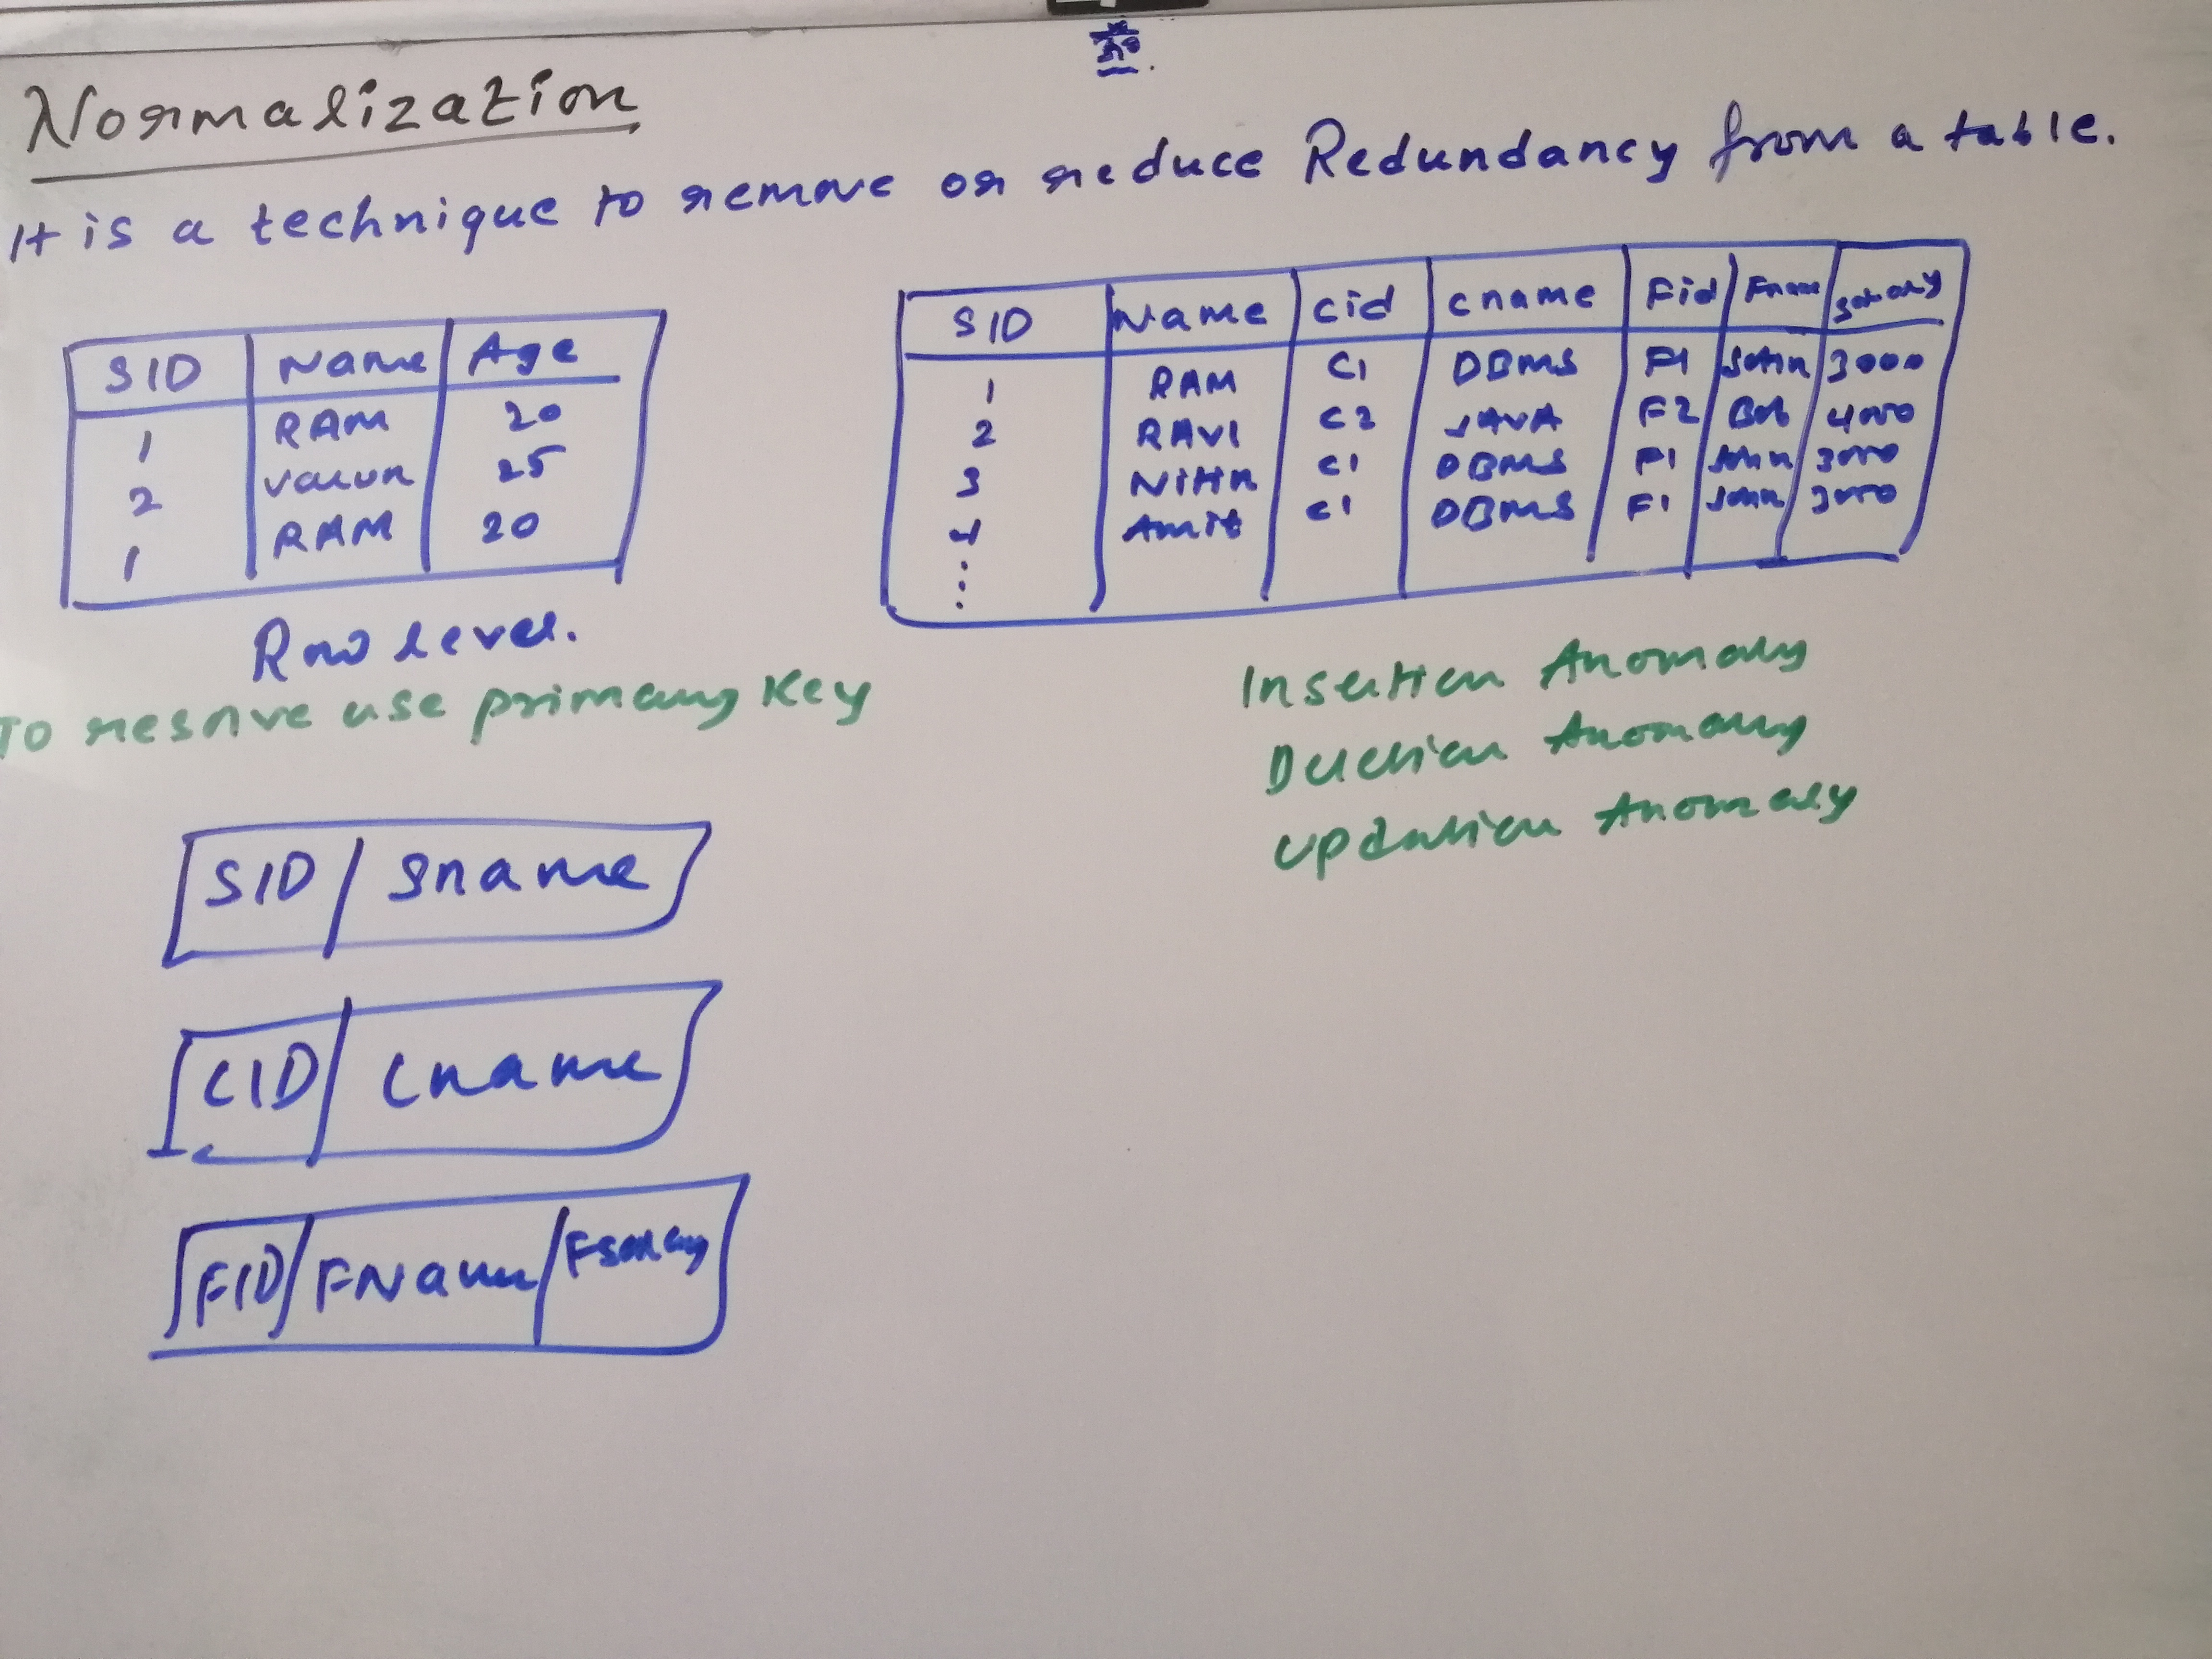 Normalization
It is a technique to remove or reduce Redundancy from a table.
SID Name Age
1 RAM 20
2 varun 25
1 RAM 20
Row level.
To resolve use primary Key
SID Name Cid Cname Fid Fname Salary
1 RAM C1 DBMS F1 John 3000
2 RAVI C2 JAVA F2 Bob 4000
3 Nitin C1 DBMS F1 John 3000
4 Amit C1 DBMS F1 John 3000
Insertion Anomaly
Deletion Anomaly
Updation Anomaly
SID Sname
CID Cname
FID FName Fsalary